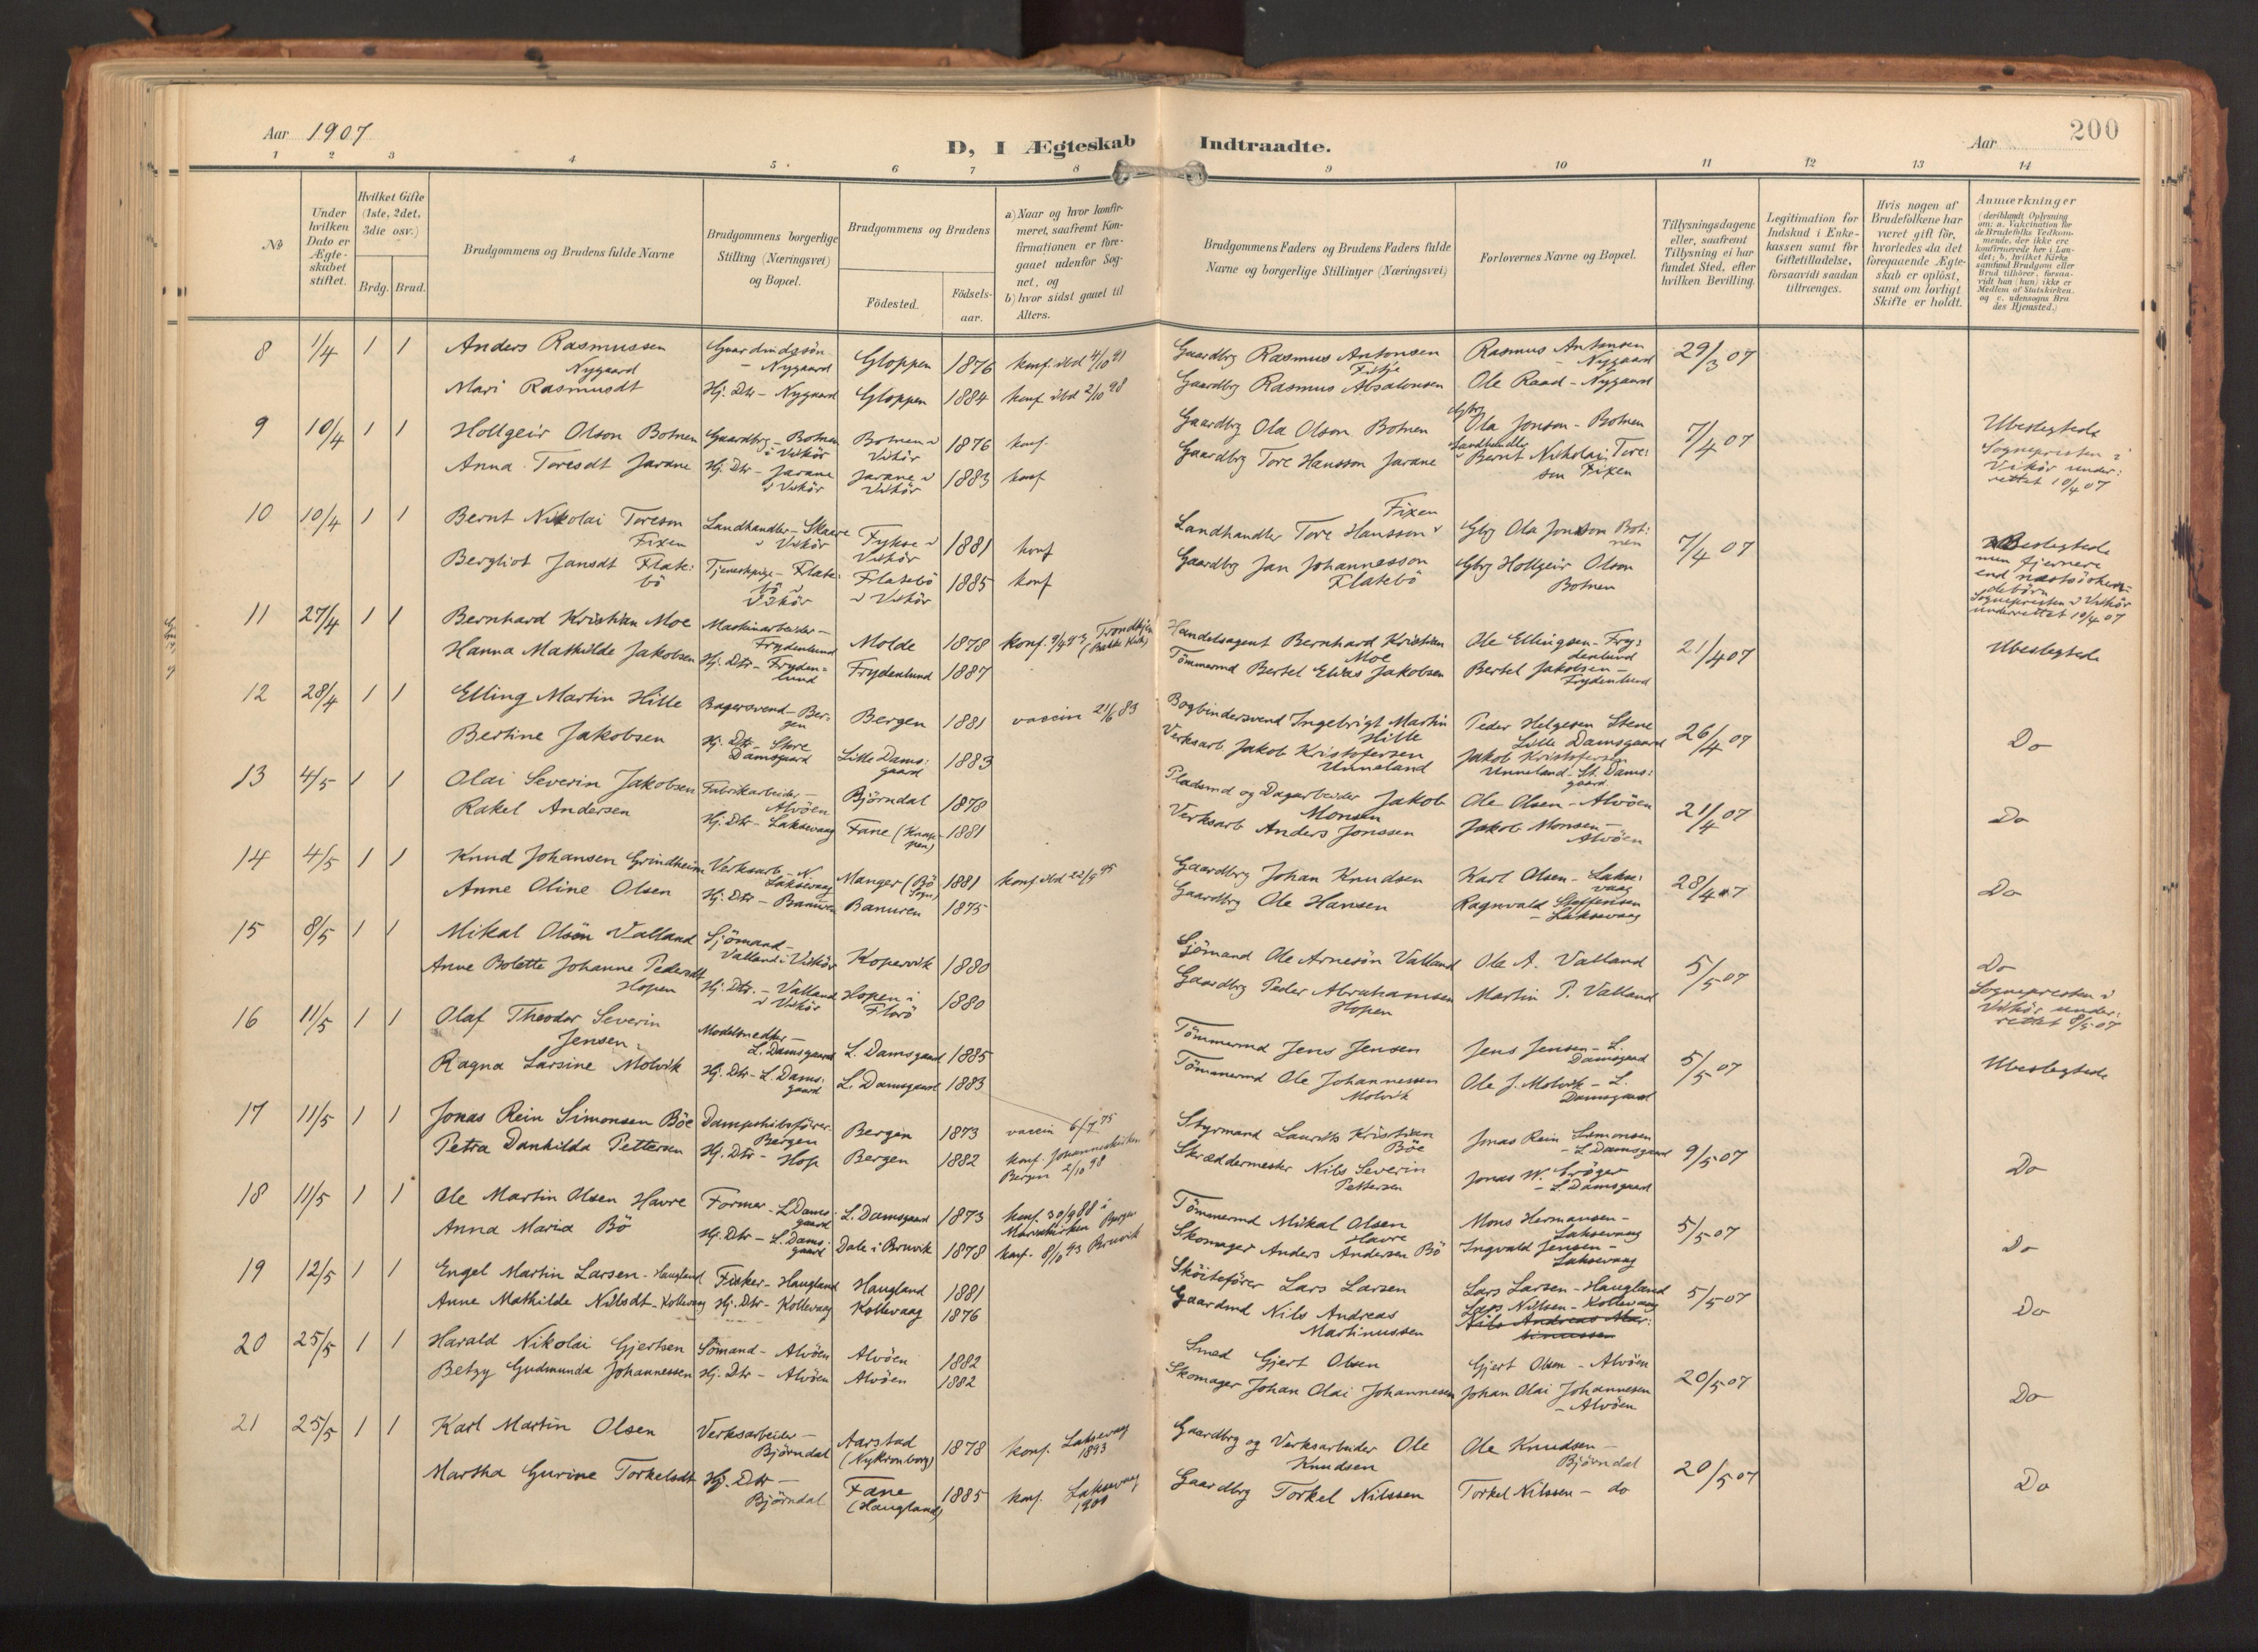 Aar 1907
D, I Ægteskab Indtraadte.
Aar
200
1 2 3 4 5 6 7 8 9 10 11 12 13 14
No
Under hvilken Dato er Ægteskabet stiftet.
Hvilket Gifte (1ste, 2det, 3die osv.)
Brdg. Brud.
Brudgommens og Brudens fulde Navne
Brudgommens borgerlige Stilling (Næringsvei) og Bopæl.
Brudgommens og Brudens
Födested.
Födselsaar.
a) Naar og hvor konfirmeret, saafremt Konfirmationen er foregaaet udenfor Sognet, og
b) hvor sidst gaaet til Alters.
Brudgommens Faders og Brudens Faders fulde Navne og borgerlige Stillinger (Næringsvei)
Forlovernes Navne og Bopæl.
Tillysningsdagene eller, saafremt Tillysning ei har fundet Sted, efter hvilken Bevilling.
Legitimation for Indskud i Enkekassen samt for Giftetilladelse, forsaavidt saadan tiltrænges.
Hvis nogen af Brudefolkene har været gift för, hvorledes da det foregaaende Ægteskab er oplöst, samt om lovligt Skifte er holdt.
Anmærkninger
(deriblandt Oplysning om: a. Vakcination for de Brudefolks Vedkommende, der ikke ere konfirmerede her i Landet; b. hvilket Kirkesamfund Brudgom eller Brud tilhører, forsaavidt han (hun) ikke er Medlem af Statskirken. og c. udensogns Brudes Hjemsted.)
8 1/4 1 1 Anders Rasmussen Nygaard Gloppen 1876 konf. ibd 4/10 91 Gaardbrg Rasmus Antonsen Fitje Rasmus Antonsen - Nygaard 29/3 07
Mari Rasmusdt Hj. Dtr - Nygaard Gloppen 1884 konf ibd 2/10 98 Gaardbrg Rasmus Absalonsen Ole Raad - Nygaard
9 10/4 1 1 Hollgeir Olson Botnen Gaardbrg - Botnen i Vikör Botnen i Vikör 1876 konf. Gaardbrg Ola Olson Botnen Gbrg Ola Jonson - Botnen 7/4 07 Ubeslegtede
Anna Toresdt Jarane Hj. Dtr - Jarane i Vikör Jarane i Vikör 1883 konf Gaardbrg Tore Hansson Jarane Landhandler Bernt Nikolai Toresen Fixen Sognepresten i Vikör underrettet 10/4 07
10 10/4 1 1 Bernt Nikolai Toreson Fixen Landhandler - Skaare i Vikör Fykse i Vikör 1881 konf Landhandler Tore Hansson Fixen Gbrg Ola Jonson Botnen 7/4 07 Beslegtede men fjernere end næstsöskendebörn
Bergliot Jansdt Flatebö Tjenestepige - Flatebö i Vikör Flatebö i Vikör 1885 konf Gaardbrg Jan Johannesson Flatebö Gbrg Hollgeir Olson Botnen Sognepresten i Vikör underrettet 10/4 07
11 27/4 1 1 Bernhard Kristian Moe Maskinarbeider - Frydenlund Molde 1878 konf. Trondhjem (Bakke Kirke) Handelsagent Bernhard Kristian Moe Ole Ellingsen - Frydenlund 21/4 07 Ubeslegtede
Hanna Mathilde Jakobsen Hj. Dtr - Frydenlund Frydenlund 1887 Tömmermd Bertel Elias Jakobsen Bertel Jakobsen - Frydenlund
12 28/4 1 1 Elling Martin Hille Bagersvend - Bergen Bergen 1881 vaccin 21/6 83 Bogbindersvend Ingebrigt Martin Hille Peder Helgesen Stene Lille Damsgaard 26/4 07 Do
Bertine Jakobsen Hj. Dtr - Store Damsgaard Lille Damsgaard 1883 Verksarb. Jakob Kristofersen Unneland Jakob Kristofersen Unneland - St. Damsgaard
13 4/5 1 1 Olai Severin Jakobsen Fabrikarbeider - Alvöen Björndal 1878 Pladsmd og Dagarbeider Jakob Monsen Ole Olsen - Alvöen 21/4 07 Do
Rakel Andersen Hj. Dtr - Laksevaag Fane (Knappen) 1881 Verksarb Anders Jonssen Jakob Monsen - Alvöen
14 4/5 1 1 Knud Johansen Grindheim Verksarb - N. Laksevaag Manger (Bö Sogn) 1881 konf. ibd 22/9 95 Gaardbrg Johan Knudsen Karl Olsen - Laksevaag 28/4 07 Do
Anne Oline Olsen Hj. Dtr - Banuren Banuren 1875 Gaardbrg Ole Hansen Ragnvald Steffensen - Laksevaag
15 8/5 1 1 Mikal Olsön Valland Sjömand - Valland i Vikör Kopervik 1880 Sjömand Ole Arnesön Valland Ole A. Valland 5/5 07 Do
Anne Bolette Johanne Pedersdt Hopen Hj. Dtr. - Valland i Vikör Hopen i Florö 1880 Gaardbrg Peder Abrahamsen Hopen Martin P. Valland Sognepresten i Vikör underrettet 8/5 07
16 11/5 1 1 Olaf Theodor Severin Jensen Modelsnedker - L. Damsgaard L. Damsgaard 1885 Tömmermd Jens Jensen Jens Jensen - L. Damsgaard 5/5 07 Ubeslegtede
Ragna Larsine Molvik Hj. Dtr - L. Damsgaard L. Damsgaard 1883 Tömmermd Ole Johannessen Molvik Ole J. Molvik - L. Damsgaard
17 11/5 1 1 Jonas Rein Simonsen Böe Dampskibsförer - Bergen Bergen 1873 vaccin 6/7 75 Styrmand Laurits Kristian Böe Jonas Rein Simonsen - L. Damsgaard 9/5 07 Do
Petra Dankilda Pettersen Hj. Dtr - Hop Bergen 1882 konf. Johanneskirken Bergen 2/10 98 Skræddermester Nils Severin Pettersen Jonas W. Kröger - L. Damsgaard
18 11/5 1 1 Ole Martin Olsen Havre Former - L. Damsgaard L. Damsgaard 1873 konf. 30/9 88 i Mariakirken Bergen Tömmermd Mikal Olsen Havre Mons Hermansen - Laksevaag 5/5 07 Do
Anna Maria Bö Hj. Dtr - L. Damsgaard Dale i Bruvik 1878 konf. 8/10 93 Bruvik Skomager Anders Andersen Bö Ingvald Jensen - Laksevaag
19 12/5 1 1 Engel Martin Larsen - Haugland Fisker - Haugland Haugland 1881 Sköitefører Lars Larsen Lars Larsen - Haugland 5/5 07 Do
Anne Mathilde Nilsdt - Kollevaag Hj. Dtr - Kollevaag Kollevaag 1876 Gaardmd Nils Andreas Martinussen Lars Nilsen - Kollevaag
Nils Andreas Martinussen
20 25/5 1 1 Harald Nikolai Gjertsen Sömand - Alvöen Alvöen 1882 Smed Gjert Olsen Gjert Olsen - Alvöen 20/5 07 Do
Betzy Gudmunda Johannessen Hj. Dtr - Alvöen Alvöen 1882 Skomager Johan Olai Johannesen Johan Olai Johannesen - Alvöen
21 25/5 1 1 Karl Martin Olsen Verksarbeider - Björndal Aarstad (Nykronborg) 1878 konf. Laksevaag 1893 Gaardbrg og Verksarbeider Ole Knudsen Ole Knudsen - Björndal 20/5 07 Do
Martha Gurine Torkelsdt Hj. Dtr - Björndal Fane (Haugland) 1885 konf. Laksevaag Gaardbrg Torkel Nilssen Torkel Nilssen - do